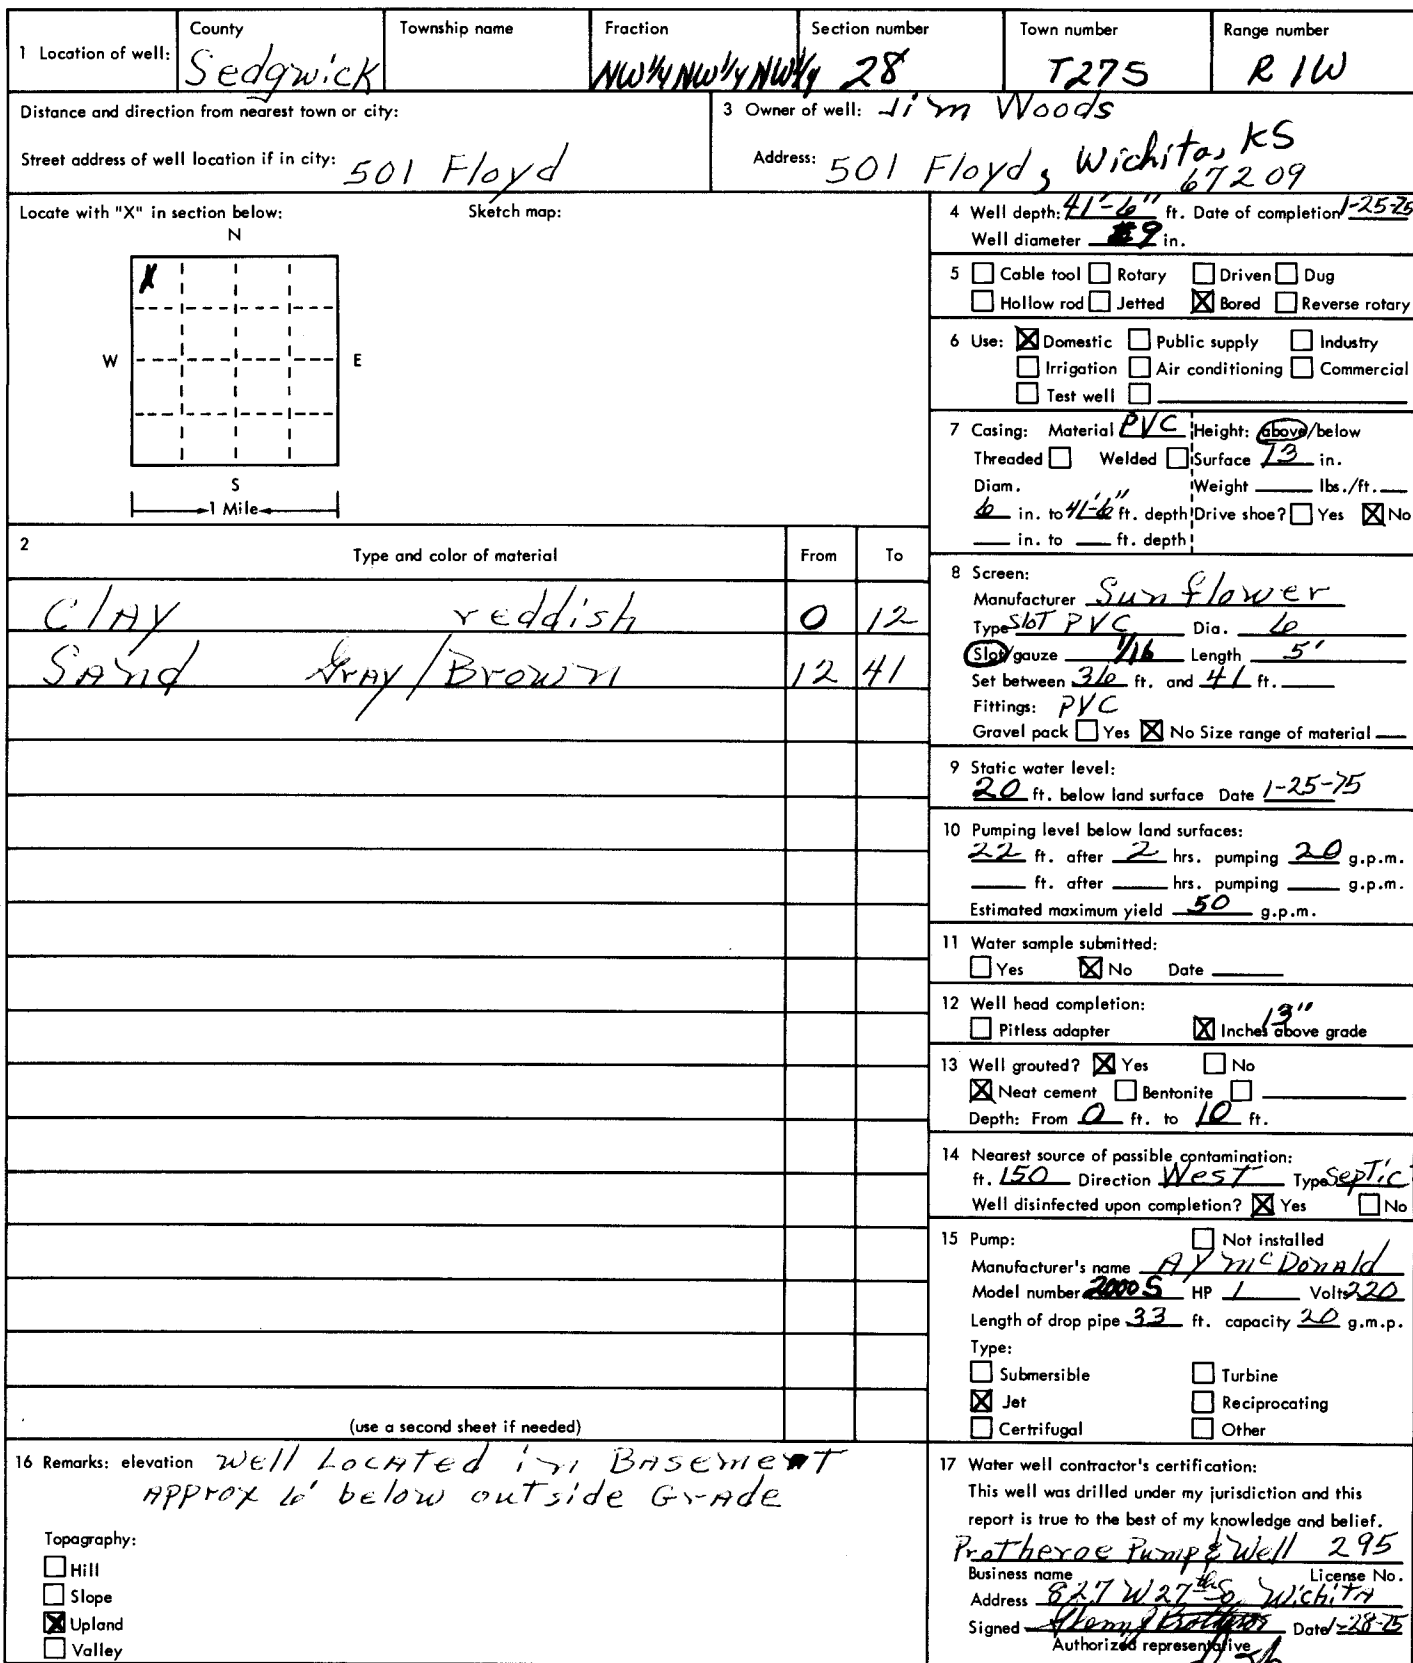 1 Location of well: County Township name Fraction Section number Town number Range number
Sedgwick NW¼NW¼NW¼ 28 T27S R 1W
Distance and direction from nearest town or city:
Street address of well location if in city: 501 Floyd
3 Owner of well: Jim Woods
Address: 501 Floyd, Wichita, KS
67209
Locate with "X" in section below: Sketch map:
N
X
W E
S
1 Mile
2 Type and color of material From To
Clay reddish 0 12
Sand Gray/Brown 12 41
(use a second sheet if needed)
4 Well depth: 41'-6" ft. Date of completion 1-25-75
Well diameter 9 in.
5 Cable tool Rotary Driven Dug
Hollow rod Jetted Bored Reverse rotary
6 Use: Domestic Public supply Industry
Irrigation Air conditioning Commercial
Test well
7 Casing: Material PVC Height: above/below
Threaded Welded Surface 13 in.
Diam. Weight lbs./ft.
6 in. to 41'-6" ft. depth Drive shoe? Yes No
in. to ft. depth
8 Screen:
Manufacturer Sunflower
Type Slot PVC Dia. 6
Slot/gauze 1/16 Length 5'
Set between 36 ft. and 41 ft.
Fittings: PVC
Gravel pack Yes No Size range of material
9 Static water level:
20 ft. below land surface Date 1-25-75
10 Pumping level below land surfaces:
22 ft. after 2 hrs. pumping 20 g.p.m.
ft. after hrs. pumping g.p.m.
Estimated maximum yield 50 g.p.m.
11 Water sample submitted:
Yes No Date
12 Well head completion:
Pitless adapter 13" Inches above grade
13 Well grouted? Yes No
Neat cement Bentonite
Depth: From 0 ft. to 10 ft.
14 Nearest source of passible contamination:
ft. 150 Direction West Type Septic
Well disinfected upon completion? Yes No
15 Pump: Not installed
Manufacturer's name AY McDonald
Model number 2000 S HP 1 Volts 220
Length of drop pipe 33 ft. capacity 20 g.m.p.
Type:
Submersible Turbine
Jet Reciprocating
Certrifugal Other
16 Remarks: elevation Well Located in Basement
Approx 6' below outside Grade
Topagraphy:
Hill
Slope
Upland
Valley
17 Water well contractor's certification:
This well was drilled under my jurisdiction and this
report is true to the best of my knowledge and belief.
Protheroe Pump & Well 295
Business name License No.
Address 827 W 27th So. Wichita
Signed Date 1-28-75
Authorized representative